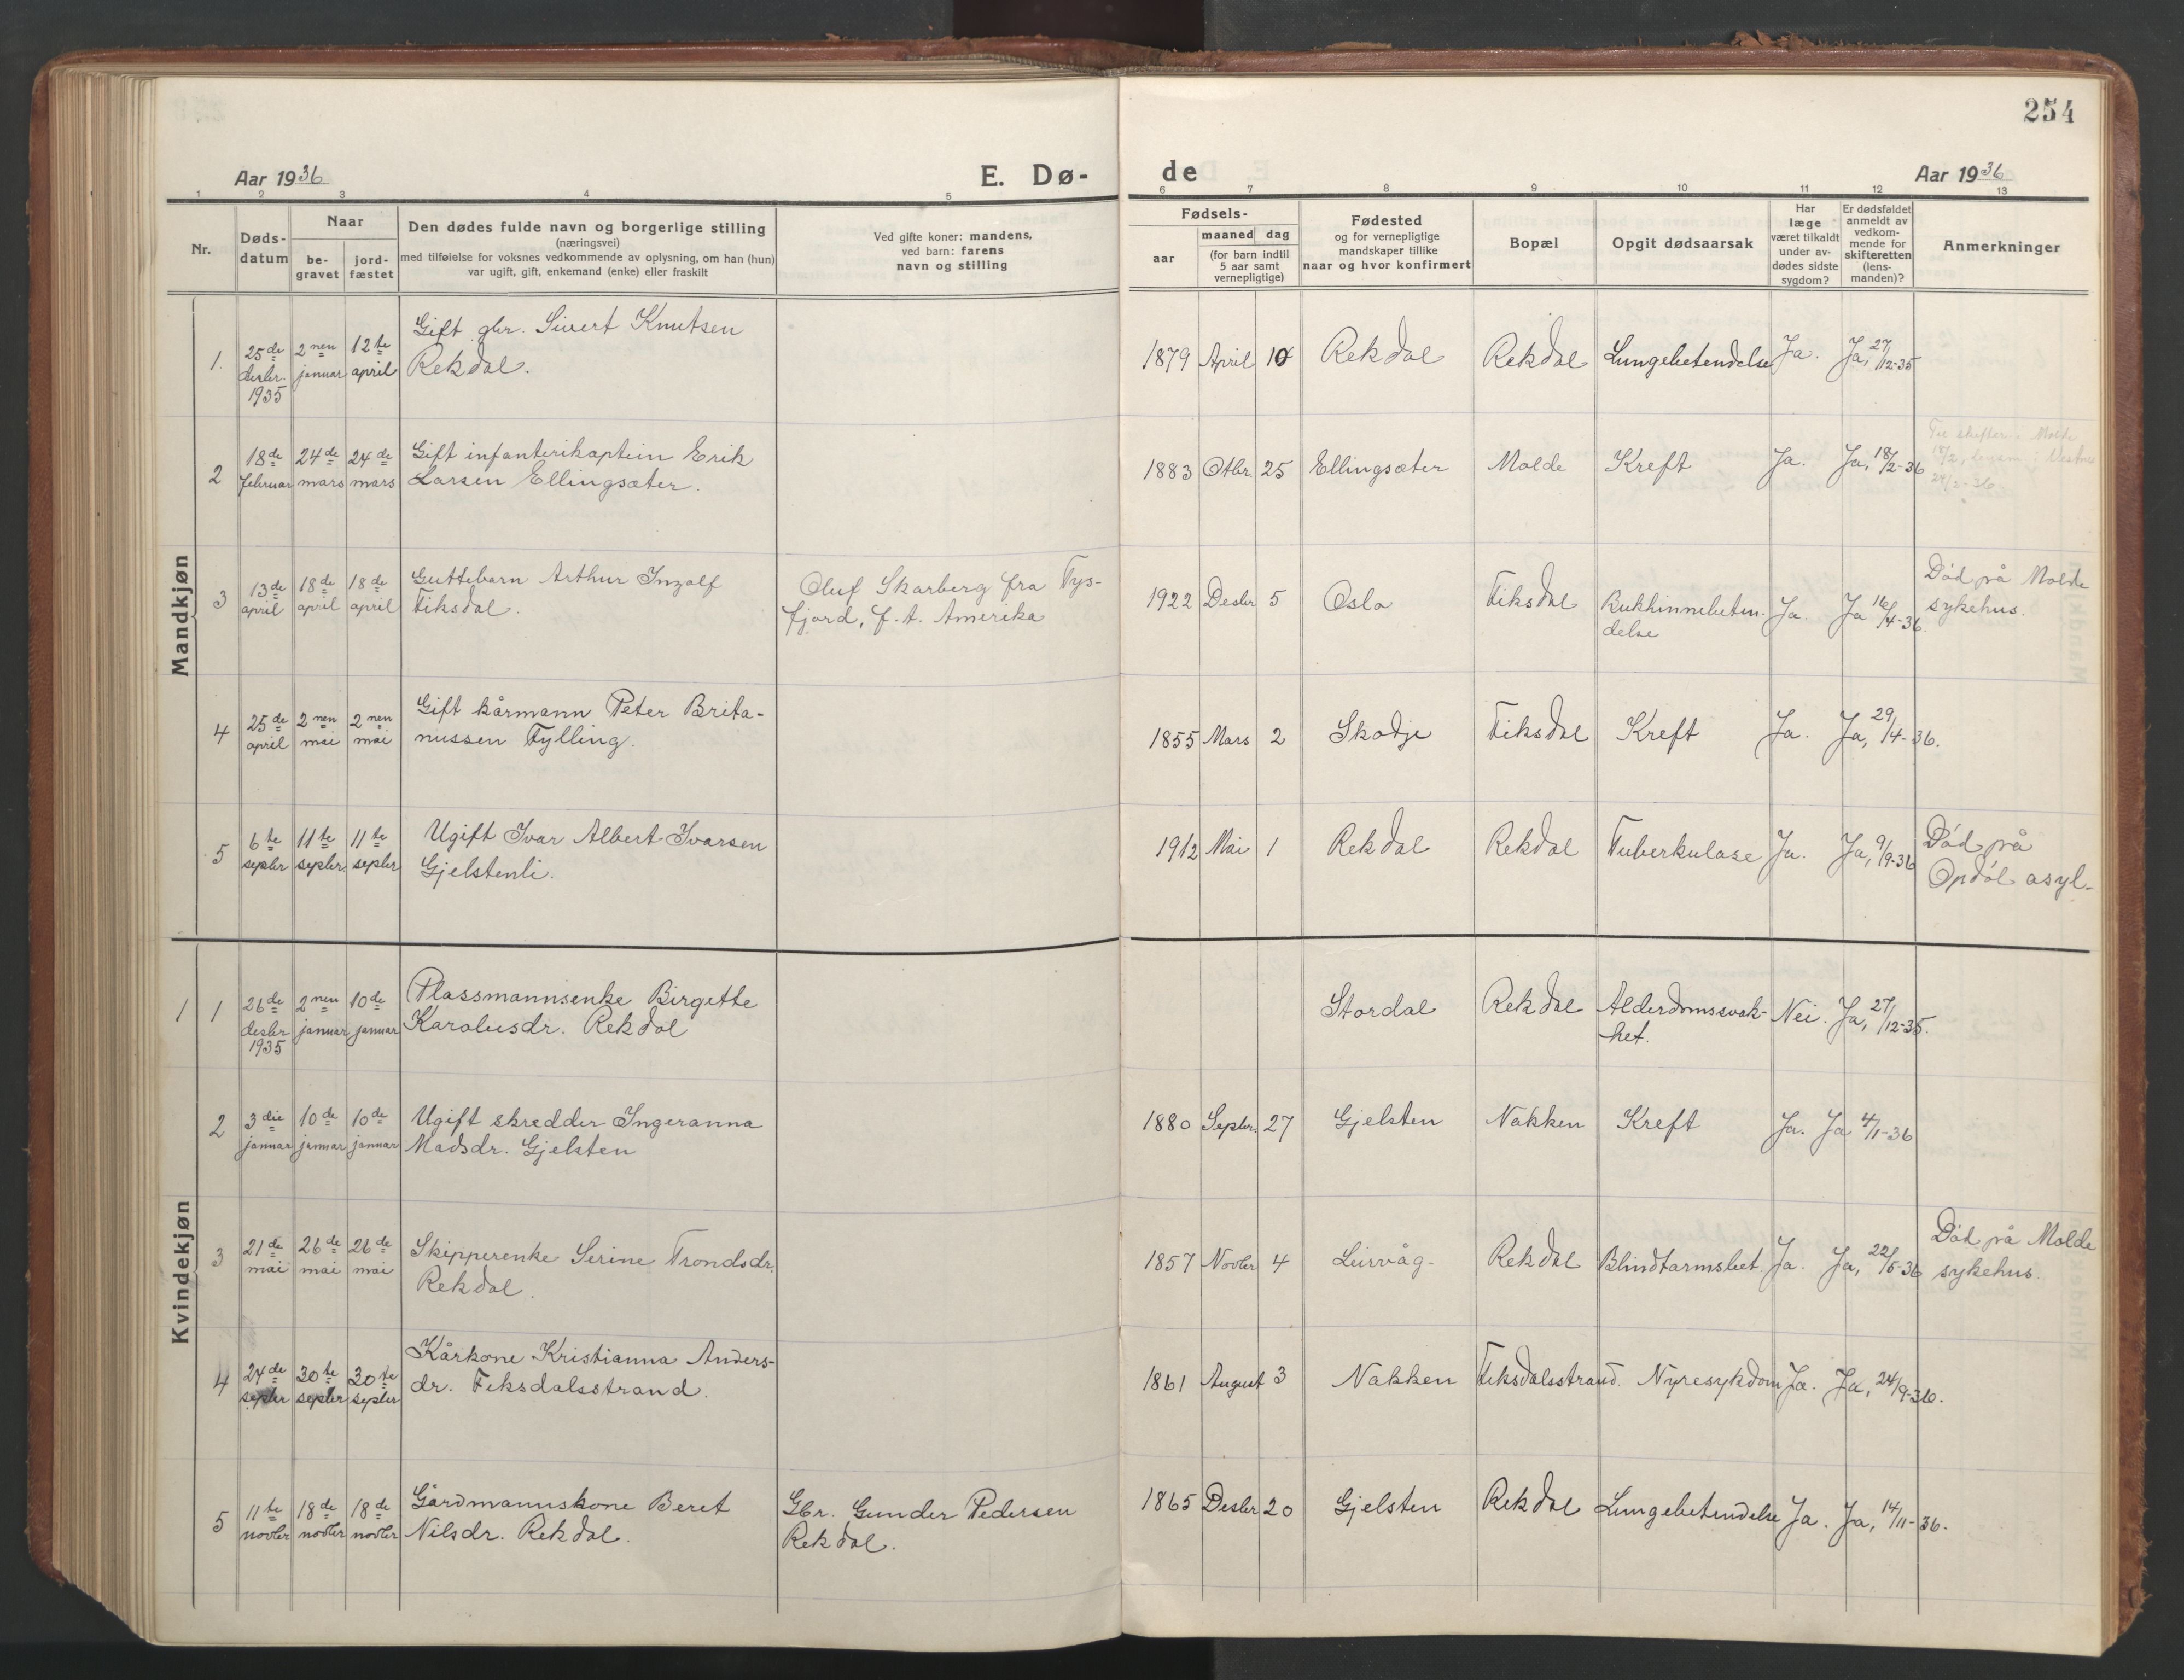 254
Aar 1936
E. Dø-
de
Aar 1936
1 2 3 4 5 6 7 8 9 10 11 12 13
Nr.
Døds-
datum
Naar
be-
gravet
jord-
fæstet
Den dødes fulde navn og borgerlige stilling
(næringsvei)
med tilføielse for voksnes vedkommende av oplysning, om han (hun)
var ugift, gift, enkemand (enke) eller fraskilt
Ved gifte koner: mandens,
ved barn: farens
navn og stilling
Fødsels-
aar
maaned dag
(for barn indtil
5 aar samt
vernepligtige)
Fødested
og for vernepligtige
mandskaper tillike
naar og hvor konfirmert
Bopæl
Opgit dødsaarsak
Har
læge
været tilkaldt
under av-
dødes sidste
sygdom?
Er dødsfaldet
anmeldt av
vedkom-
mende for
skifteretten
(lens-
manden)?
Anmerkninger
Mandkjøn
1.
25de
desbr.
1935
2nen
januar
12te
april
Gift gbr. Sivert Knutsen
Rekdal.
1879 April 10
Rekdal
Rekdal
Lungebetendelse
Ja.
Ja, 27/12-35
2
18de
februar
24de
mars
24de
mars
Gift infanterikaptein Erik
Larsen Ellingsæter.
1883 Otbr. 25
Ellingsæter
Molde
Kreft
Ja.
Ja, 18/2-36
Molde
18/2, i Vestnes
24/2-36
3
13de
april
18de
april
18de
april
Guttebarn Arthur Ingolf
Tiksdal.
Oluf Skarberg fra Tys-
fjord, f.t. Amerika
1922 Desbr 5
Oslo
Tiksdal
Bukhinnebeten-
delse
Ja.
Ja 16/4-36.
Död på Molde
sykehus.
4
25de
april
2nen
mai
2nen
mai
Gift kårmann Peter Brita-
nussen Fylling.
1855 Mars 2
Skodje
Tiksdal
Kreft
Ja.
Ja, 29/4-36.
5
6te
septbr
11te
septbr.
11te
septbr
Ugift Ivar Albert Ivarsen
Gjelstenli.
1912 Mai 1
Rekdal
Rekdal
Tuberkulose
Ja.
Ja, 9/9-36
Död på
Opdöl asyl.
Kvindekjøn
1 1
26de
desbr
1935
2nen
januar
10de
januar
Plassmannsenke Birgette
Karolusdr. Rekdal
Stordal
Rekdal
Alderdomssvak-
het.
Nei.
Ja, 27/12-35.
2
3die
januar
10de
januar
10de
januar
Ugift skredder Ingeranna
Madsdr. Gjelsten
1880 Septbr. 27
Gjelsten
Nakken
Kreft
Ja.
Ja 4/1-36
3
21de
mai
26de
mai
26de
mai
Skipperenke Serine Trondsdr.
Rekdal.
1857 Novbr 4
Leirvåg
Rekdal
Blindtarmsbet.
Ja.
Ja, 22/5-36
Död på Molde
sykehus.
4
24de
septbr
30te
septbr
30te
septbr
Kårkone Kristianna Anders-
dr. Fiksdalsstrand.
1861 August 3
Nakken
Fiksdalsstrand.
Nyresykdom
Ja.
Ja, 24/9-36.
5
11te
novbr
18de
novbr
18de
novbr
Gårdmannskone Beret
Nilsdr. Rekdal.
Gbr. Gunder Pedersen
Rekdal.
1865 Desbr 20
Gjelsten
Rekdal
Lungebetendelse
Ja.
Ja, 14/11-36.